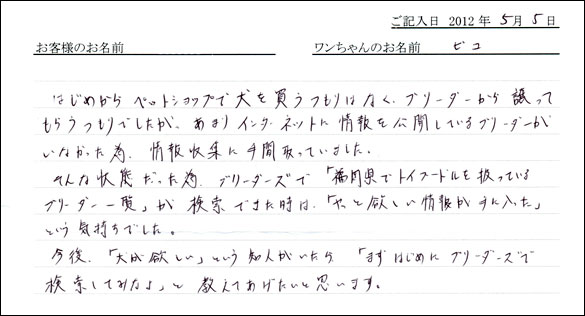 ご記入日 2012年 5月 5日
お客様のお名前 ワンちゃんのお名前 ピコ
はじめから ペットショップで犬を買うつもりはなく、ブリーダーから 譲って
もらうつもりでしたが、あまり インターネットに 情報を公開しているブリーダーが
いなかった為、情報収集に手間取っていました。
そんな状態だった為、ブリーダーズで「福岡県でトイプードルを扱っている
ブリーダー一覧」が 検索できた時は、「やっと欲しい情報が手に入った」
という気持ちでした。
今後、「犬が欲しい」という知人がいたら「まず はじめに ブリーダーズで
検索してみなよ」と 教えてあげたいと思います。